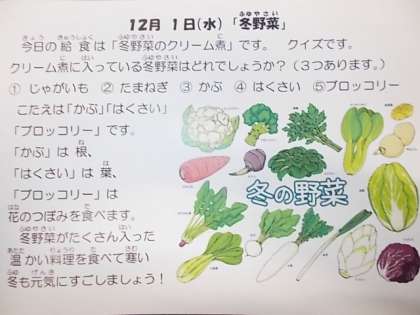 12月 1日(水)「冬野菜」
今日の給食は「冬野菜のクリーム煮」です。 クイズです。
クリーム煮に入っている冬野菜はどれでしょうか?(3つあります。)
① じゃがいも ② たまねぎ ③ かぶ ④ はくさい ⑤ブロッコリー
こたえは「かぶ」「はくさい」
「ブロッコリー」です。
「かぶ」は 根、
「はくさい」は 葉、
「ブロッコリー」は
花のつぼみを食べます。
冬野菜がたくさん入った
温かい料理を食べて寒い
冬も元気にすごしましょう!
冬の野菜